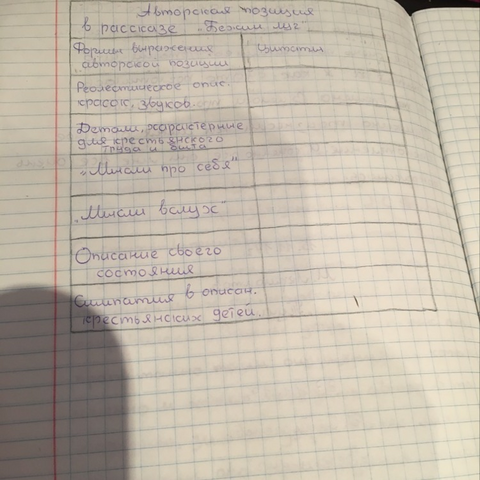 Авторская позиция
в рассказе „Бежин луг"
Формы выражения
авторской позиции
Цитаты
Реолестическое опис.
красок, звуков.
Детали, характерные
для крестьянского
труда и быта
„Мысли про себя"
„Мысли вслух"
Описание своего
состояния
Симпатия в описан.
крестьянских детей.